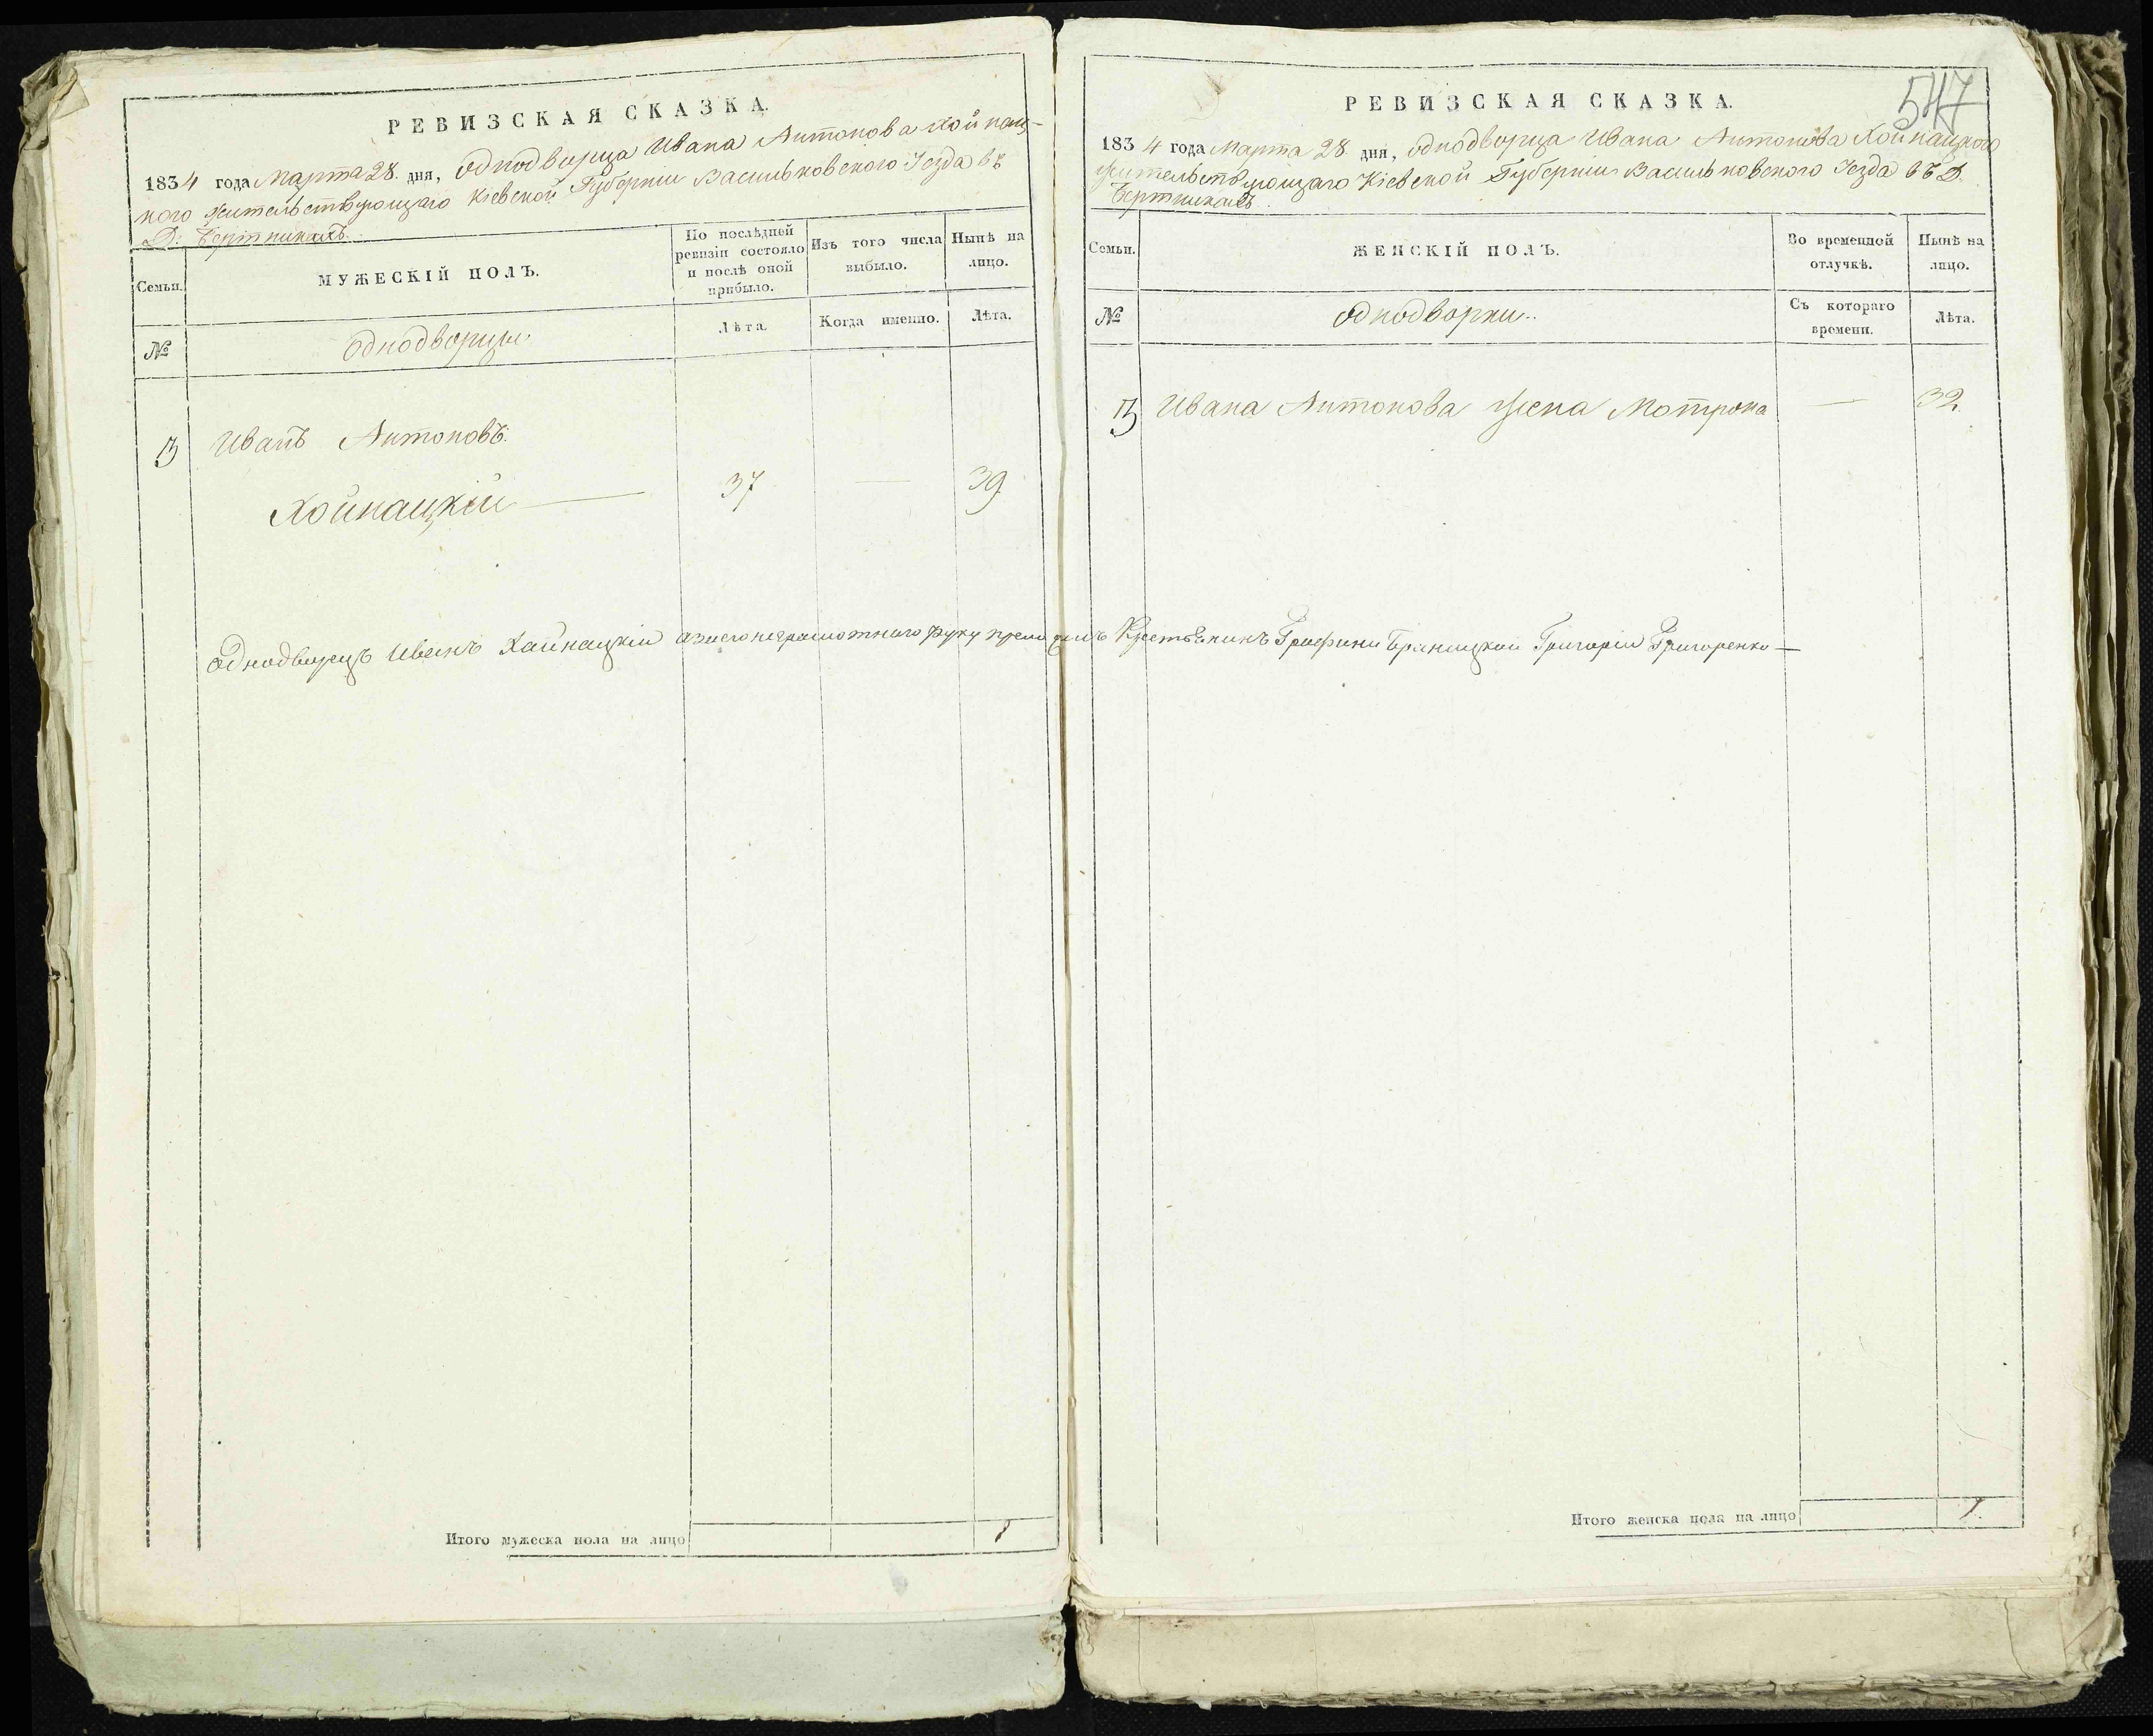 РЕВИЗСКАЯ СКАЗКА.
1834 года Марта 28. дня, однодворца Ивана Антонова Хойнац-
кого жительствующаго Кіевской Губерніи Васильковского Уезда въ
Д:
Семьи.
МУЖЕСКІЙ ПОЛЪ.
По послѣдней ревизіи состояло и послѣ оной прибыло.
Изъ того числа выбыло.
Нынѣ на лицо.
№
однодворцы.
Лѣта.
Когда именно.
Лѣта.
Иванъ Антоновъ.
Хойнацкій — 37 — 39
Однодворецъ Иванъ Хайнацкій а заего неграмотнаго руку приложилъ Крестьянинъ Графини Браницкой Григорій Григоренко —
Итого мужеска пола на лицо 1
547
РЕВИЗСКАЯ СКАЗКА.
1834 года Марта 28 дня, однодворца Ивана Антонова Хойнацкого
жительствующаго Кіевской Губерніи Васильковского Уезда въ Д.
Семьи.
ЖЕНСКІЙ ПОЛЪ.
Во временной отлучкѣ.
Нынѣ на лицо.
№
однодворки.
Съ котораго времени.
Лѣта.
Ивана Антонова жена Мотрона — 32.
Итого женска пола на лицо 1.